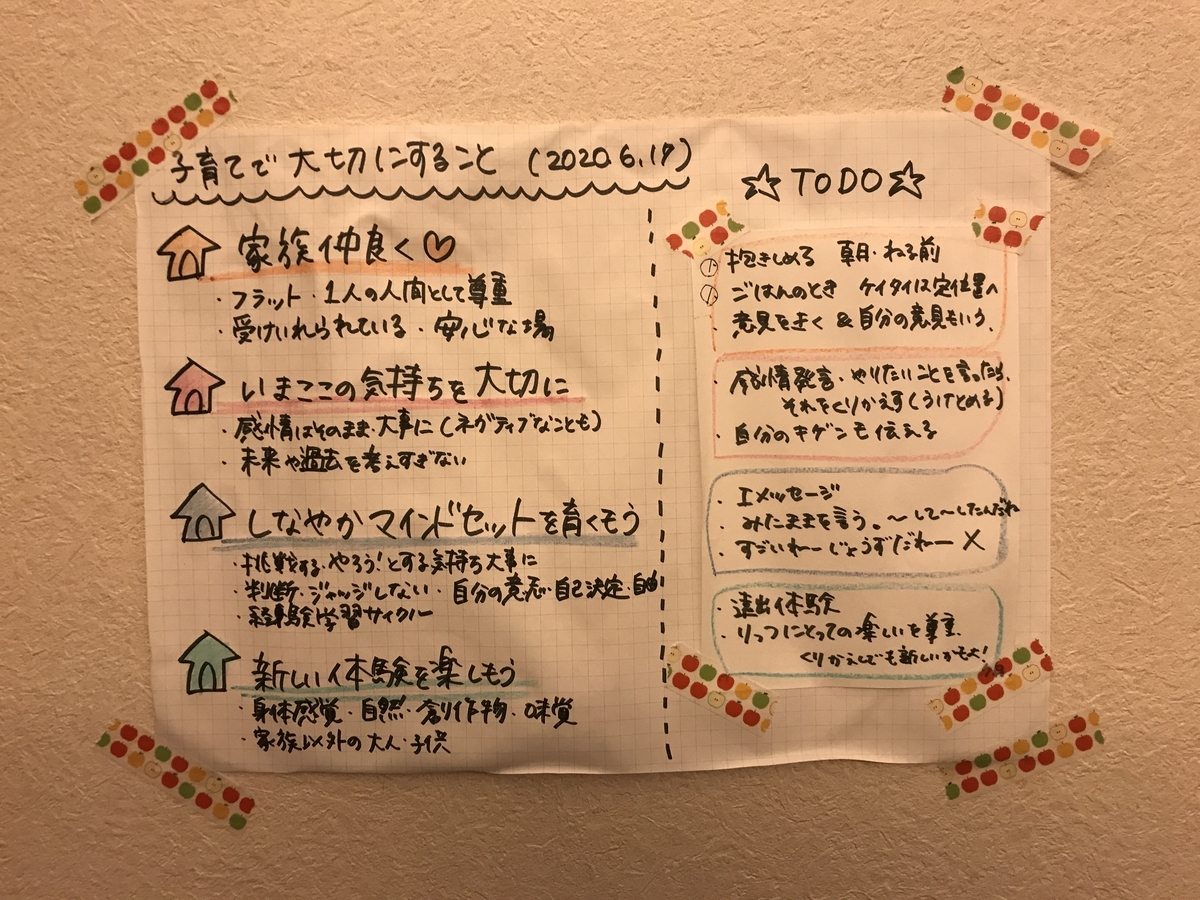 子育てで大切にすること (2020.6.17)
家族仲良く♡
・フラット・1人の人間として尊重
・受けいれられている・安心な場
いまここの気持ちを大切に
・感情はそのまま大事に(ネガティブなことも)
・未来や過去を考えすぎない
しなやかマインドセットを育くもう
・挑戦する・やろう!とする気持ち大事に
・判断・ジャッジしない・自分の意志・自己決定・自由
・経験学習サイクル
新しい体験を楽しもう
・身体感覚・自然・創作物・味覚
・家族以外の大人・子供
☆TODO☆
抱きしめる 朝・ねる前
ごはんのとき ケイタイは定位置へ
意見をきく & 自分の意見もいう。
・感情発言・やりたいことを言ったら、
それをくりかえす(うけとめる)
・自分のキゲンも伝える
・Iメッセージ
・みたままを言う。〜して〜したんだね
・すごいねーじょうずだねー ×
・遠出体験
・りっつにとっての楽しいを尊重
くりかえしでも新しいかもよ!